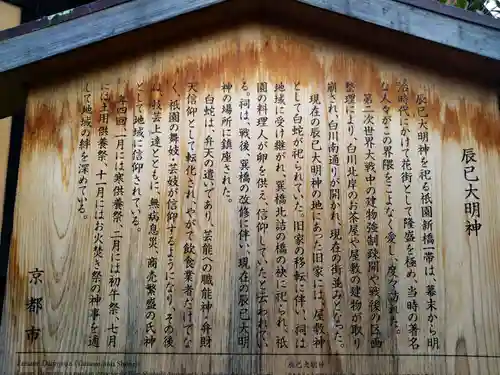 辰巳大明神
辰巳大明神を祀る祇園新橋一帯は、幕末から明
治時代にかけて花街として隆盛を極め、当時の著名
な人々がこの界隈をこよなく愛し、度々訪れた。
第二次世界大戦中の建物強制疎開や戦後の区画
整理により、白川北岸のお茶屋や屋敷の建物が取り
崩され、白川南通りが開かれ、現在の街並みとなった。
現在の辰巳大明神の地にあった旧家には、屋敷神
として白蛇が祀られていた。旧家の移転に伴い、祠は
地域に受け継がれ、巽橋北詰の橋の袂に祀られ、祇
園の料理人が卵を供え、信仰していたと云われてい
る。祠は、戦後、巽橋の改修に伴い、現在の辰巳大明
神の場所に鎮座された。
白蛇は、弁天の遣いであり、芸能の職能神・弁財
天信仰として転化され、やがて飲食業者だけでな
く、祇園の舞妓・芸妓が信仰するようになり、その後
は、技芸上達とともに、無病息災、商売繁盛の氏神
として地域に信仰されている。
年四回、一月には寒供養祭、二月には初午祭、七月
には土用供養祭、十一月にはお火焚き祭の神事を通
して地域の絆を深めている。
京都市
Tatsumi Daimyojin (Tatsumi Shinto)
辰巳大明神